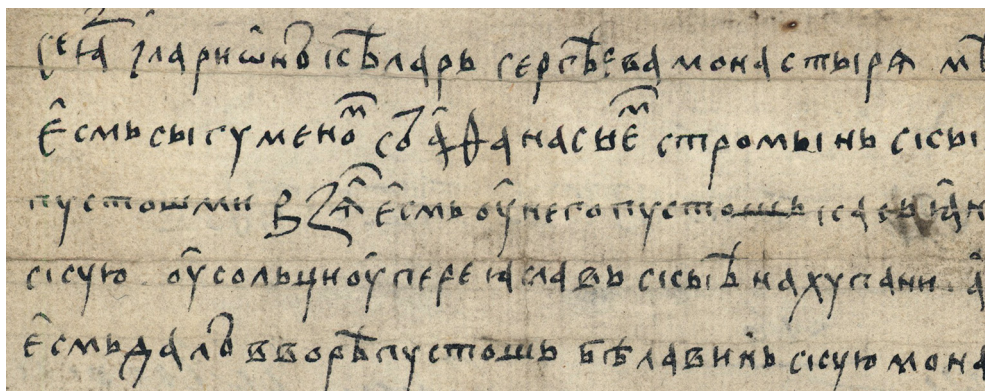 се ꙗз илариѡнъ кѣларь сергѣева монастырѧ мѣ
есмь сыгуменом съ аѳанасьем стромыньскы
пустошми взѧл есмь оу него пустошь касьꙗн
скую оусольцноу переꙗславьскыѣ на хупани а
есмь далъ вворѣ пустошь бѣлавиньскую мона